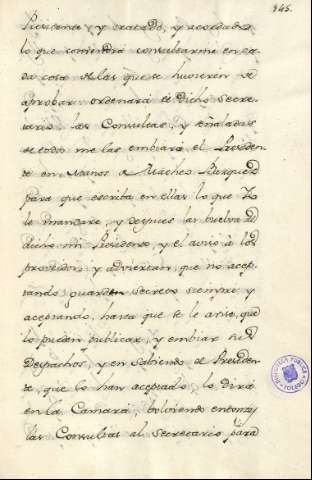 345.
Presidente y tratado, y acordado
lo que comendrá consultarme en ca-
da cosa de las que se huvieren de
aprobar ordenará el dicho Secre-
tario las Consultas, y señaladas
de todos me las embiará el Presiden-
te en manos de Matheo Bazquez
para que escriba en ellas lo que Yo
le mandare, y despues las buelva al
dicho mi Presidente, y el avise à los
proveidos y adviertan, que no acep-
tando guarden secreto siempre y
aceptando, hasta que se le avise, que
lo pueden publicar, y embiar sus
Despachos, y en sabiendo el Presiden-
te, que lo han aceptado, lo dirá
en la Camara, bolviendo entonces
las Consultas al Secretario para
BIBLIOTECA PUBLICA
TOLEDO